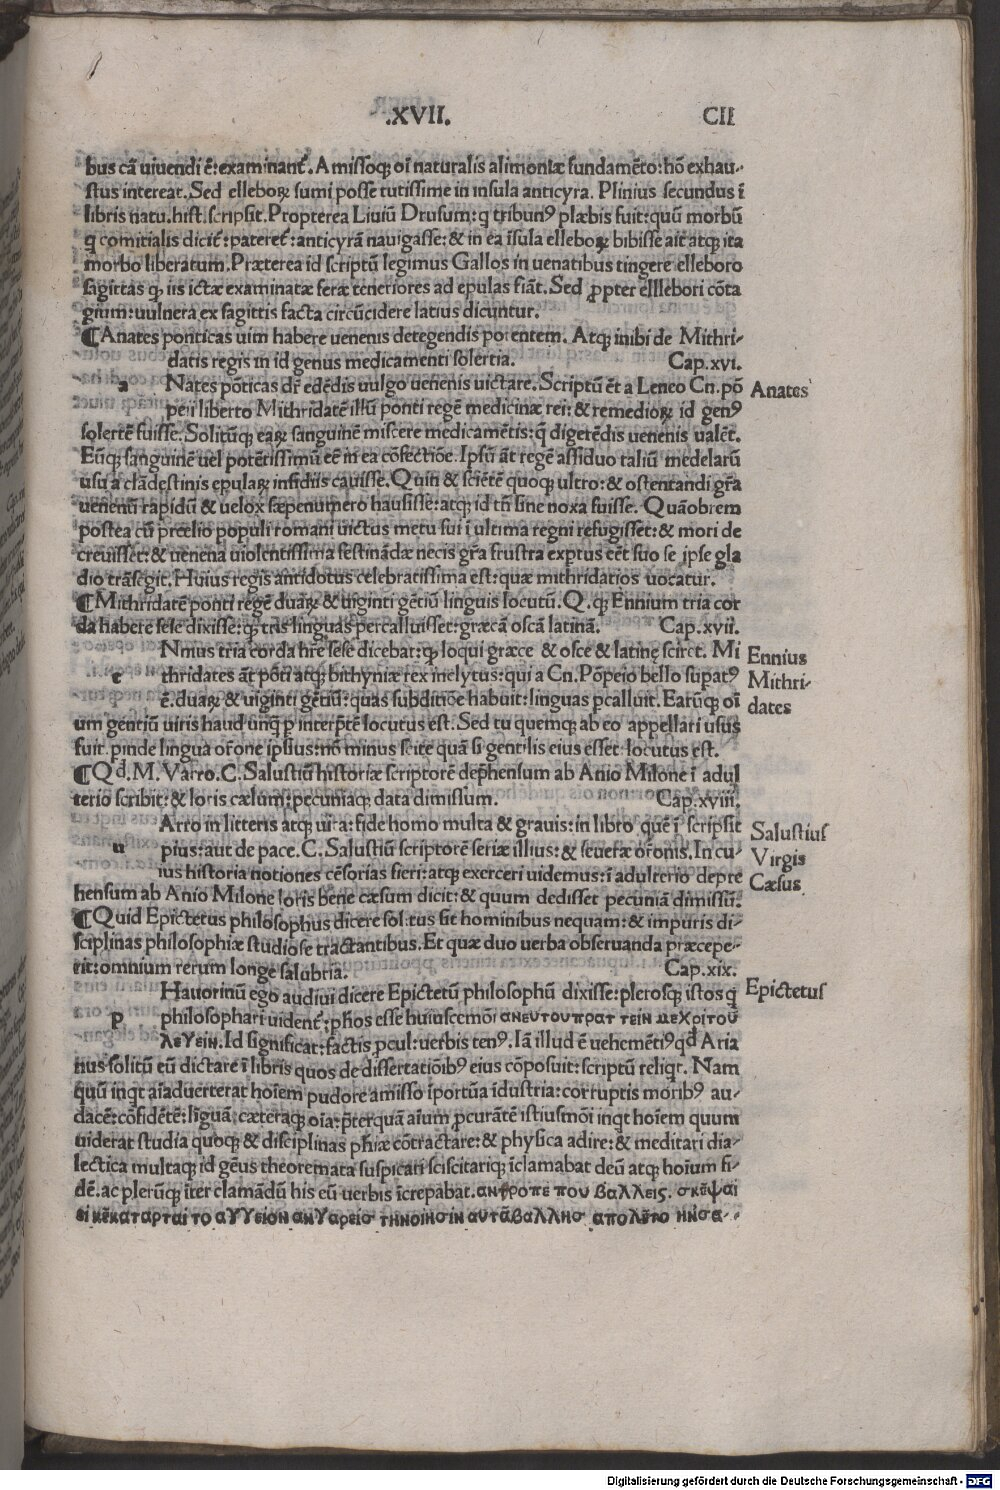 .XVII. CII
bus cā uiuendi ē: examinant᷑. Amissoq; oī naturalis alimoniæ fundamēto: hō exhau-
stus intereat. Sed elleboꝝ sumi posse tutissime in insula anticyra. Plinius secundus ī
libris natu. hist. scripsit. Propterea Liuiū Drusum: q tribunꝰ plæbis fuit: quū morbū
q comitialis dicit᷑: pateret᷑: anticyrā nauigasse: & in ea īsula elleboꝝ bibisse ait atq; ita
morbo liberatum. Præterea id scriptū legimus Gallos in uenatibus tingere elleboro
sagittas ꝙ iis ictæ examinatæ feræ teneriores ad epulas fiāt. Sed ꝓpter elllebori cōta
gium: uulnera ex sagittis facta circūcidere latius dicuntur.
¶Anates ponticas uim habere uenenis detegendis potentem. Atq; inibi de Mithri-
datis regis in id genus medicamenti solertia. Cap. xvi.
a Nates pōticas dr̄ edēdis uulgo uenenis uictare. Scriptū ēt a Leneo Cn. pō Anates
peii liberto Mithridatē illū ponti regē medicinæ rei: & remedioꝝ id genꝰ
solertē fuisse. Solitūq; eaꝝ sanguinē miscere medicamētis: q̄ digerēdis uenenis ualēt.
Eūq; sanguinē uel potētissimū eē in ea cōfectiōe. Ipsū āt regē assiduo taliū medelarū
usu a clādestinis epulaꝝ insidiis cauisse. Quin & sciētē quoq; ultro: & ostentandi gr̄a
uenenū rapidū & uelox sæpenumero hausisse: atq; id tn̄ sine noxa fuisse. Quāobrem
postea cū prœlio populi romani uictus metu sui ī ultima regni refugisset: & mori de
creuisset: & uenena uiolentissima festinādæ necis gr̄a frustra exptus eēt suo se ipse gla
dio trāsegit. Huius regis antidotus celebratissima est: quæ mithridatios uocatur.
¶Mithridatē ponti regē duaꝝ & uiginti gētiū linguis locutū. Q. q; Ennium tria cor
da habere sese dixisse: ꝙ tris linguas percalluisset: græcā oscā latinā. Cap. xvii.
e Nnius tria corda hr̄e sese dicebat: ꝙ loqui græce & osce & latinę sciret. Mi Ennius
thridates āt pōti atq; bithyniæ rex inclytus: qui a Cn. Pōpeio bello supatꝰ Mithri-
ē. duaꝝ & uiginti gētiū: quas subditiōe habuit: linguas pcalluit. Earūq; oī dates
um gentiū uiris haud unq̄ p interp̄tē locutus est. Sed tu quemq; ab eo appellari usus
fuit. pinde lingua or̄one ipsius: nō minus scite quā si gentilis eius esset locutus est.
¶Qd. M. Varro. C. Salustiū historiæ scriptorē dep̄hensum ab Anio Milone ī adul
terio scribit: & loris cælum: pecuniaq; data dimissum. Cap. xviii.
u Arro in litteris atq; uita: fide homo multa & grauis: in libro quē ī scripsit Salustius
pius: aut de pace. C. Salustiū scriptorē seriæ illius: & seueræ or̄onis. In cu- Virgis
ius historia notiones cēsorias fieri: atq; exerceri uidemus: ī adulterio depre Cæsus
hensum ab Anio Milone loris bene cæsum dicit: & quum dedisset pecuniā dimissū.
¶Quid Epictetus philosophus dicere solitus sit hominibus nequam: & impuris di-
sciplinas philosophiæ studiose tractantibus. Et quæ duo uerba obseruanda præcepe-
rit: omnium rerum longe salubria. Cap. xix.
Hauorinū ego audiui dicere Epictetū philosophū dixisse: plerosq; istos q Epictetus
p philosophari uident᷑: phōs esse huiuscemōi ανευτουπρατ τειν μεχριτου
λεγειν. Id significat: factis ꝓcul: uerbis tenꝰ. Iā illud ē uehemētiꝰ qd Aria
nus solitū eū dictare ī libris quos de dissertatiōibꝰ eius cōposuit: scriptū reliqr. Nam
quū inqt aīaduerterat hoīem pudore amisso īportūa īdustria: corruptis moribꝰ au-
dacē: cōfidētē: līguā: cæteraq; oīa: p̄terquā aīum ꝓcurātē istiusmōi inqt hoīem quum
uiderat studia quoq; & disciplinas phiæ cōtractare: & physica adire: & meditari dia-
lectica multaq; id gēus theoremata suspicari sciscitariq; īclamabat deū atq; hoīum fi-
dē. ac plerūq; īter clamādū his eū uerbis īcrepabat. ανθροπε που βαλλεις. σκεψαι
ει κεκαταρται το αγγειον αν γαρεις την οιησιν αυτα βαλλης απολετο ην σα-